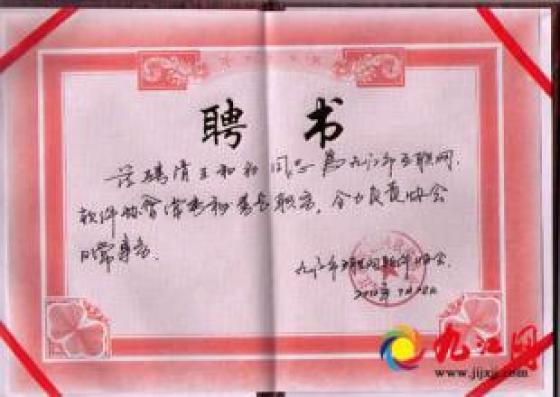 聘书
兹聘请王和和同志为九江市互联网
软件协会常务秘书长职务,全力负责协会
日常事务
九江市互联网软件协会
2010年7月
九江网
www.jijxj.com